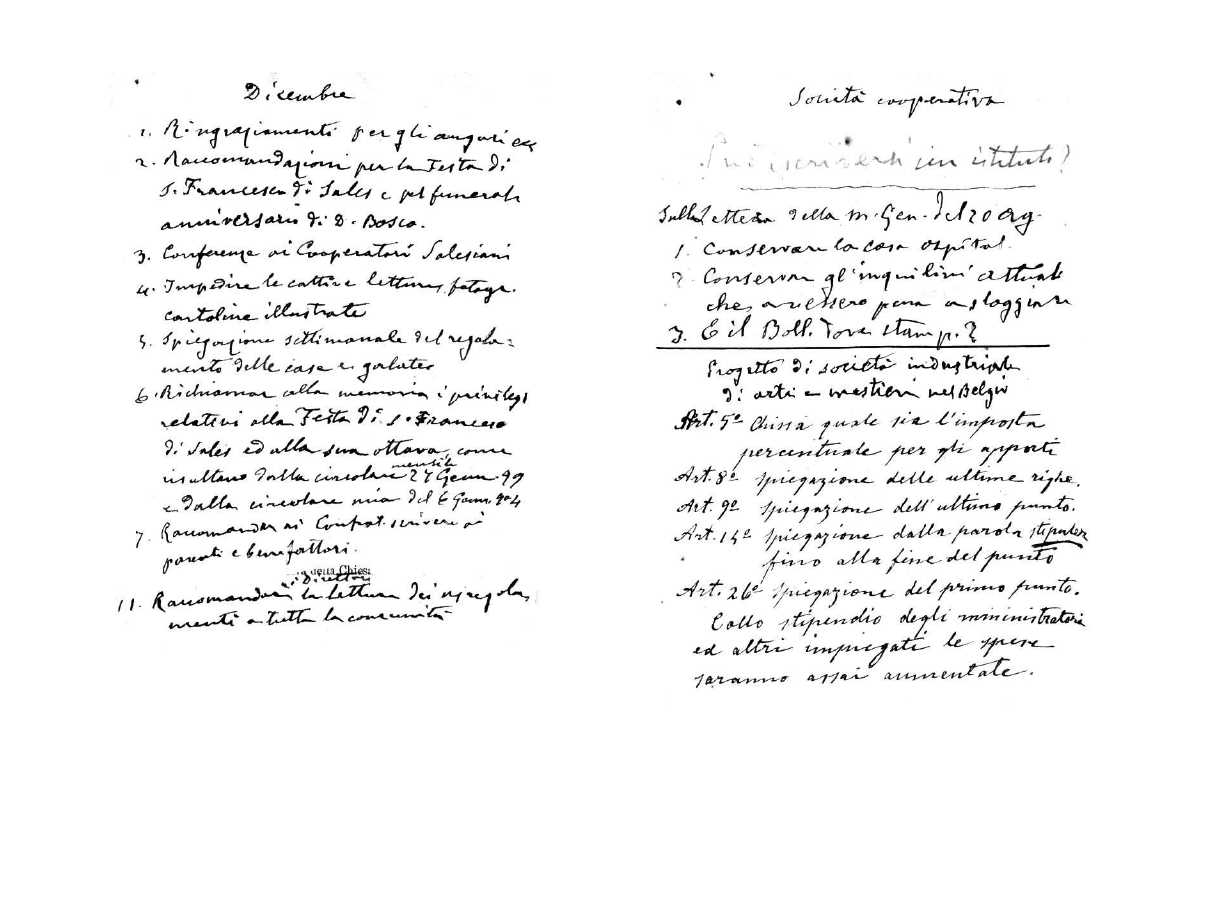 Dicembre
1. Ringraziamenti per gli auguri ecc
2. Raccomandazioni per la Festa di
S. Francesco di Sales e pel funerale
anniversario di D. Bosco.
3. Conferenze ai Cooperatori Salesiani
4. Impedire le cattive letture, fotogr.
cartoline illustrate
5. Spiegazione settimanale del regola=
mento delle case e galateo
6. Richiamar alla memoria i privilegi
relativi alla Festa di S. Francesco
di Sales ed alla sua ottava, come
risultano dalla circolare mensile 24 Genn. 99
e dalla circolare mia del 6 Genn. 904
7. Raccomandar ai Confrat. scrivere ai
parenti e benefattori.
della Chiesa
ai Direttori
11. Raccomandare la lettura dei regola
menti a tutta la comunità
Società cooperativa
iscriversi un istituto?
Sulla Lettera della M. Gen. del 20 
1. Conservare la casa ospital.
2. Conservar gl'inquilini attuali
che avessero pena a sloggiare
3. E il Boll. dove stamp.?
Progetto di società industriale
di arti e mestieri nel Belgio
Art. 5º Chissà quale sia l'imposta
percentuale per gli apporti
Art. 8º Spiegazione delle ultime righe.
Art. 9º Spiegazione dell'ultimo punto.
Art. 14º Spiegazione dalla parola
fino alla fine del punto
Art. 26º Spiegazione del primo punto.
Collo stipendio degli mministratori
ed altri impiegati le spese
saranno assai aumentate.